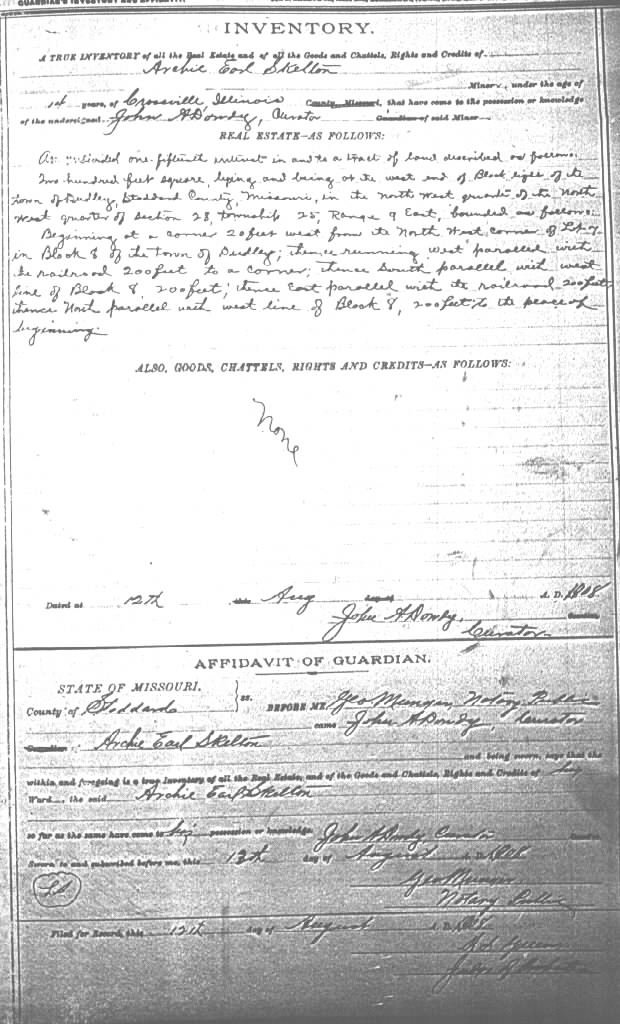 GUARDIAN'S INVENTORY AND AFFIDAVIT
INVENTORY.
A TRUE INVENTORY of all the Real Estate and of all the Goods and Chattels, Rights and Credits of
Archie Earl Skelton
Minor, under the age of
14 years, of Crossville, Illinois County, Missouri, that have come to the possession or knowledge
of the undersigned John A Dowdy, Curator Guardian of said Minor
REAL ESTATE—AS FOLLOWS:
An undivided one-fifteenth interest in and to a tract of land described as follows:
Two hundred feet square, lying and being at the west end of Block eight of the
town of Dudley, Stoddard County, Missouri, in the North West quarter of the North
West quarter of Section 28, township 25, Range 9 East, bounded as follows:
Beginning at a corner 20 feet west from the North West corner of Lot 7
in Block 8 of the town of Dudley; thence running west parallel with
the railroad 200 feet to a corner; thence South parallel with west
line of Block 8, 200 feet; thence East parallel with the railroad 200 feet
thence North parallel with west line of Block 8, 200 feet to the place of
beginning.
ALSO, GOODS, CHATTELS, RIGHTS AND CREDITS—AS FOLLOWS:
None
Dated at 12th this Aug day of A. D. 1908
John A Dowdy,
Curator
AFFIDAVIT OF GUARDIAN.
STATE OF MISSOURI,
County of Stoddard ss. BEFORE ME, Geo Munger, Notary Public
came John A Dowdy, Curator
Guardian Archie Earl Skelton
and being sworn, says that the
within and foregoing is a true Inventory of all the Real Estate, and of the Goods and Chattels, Rights and Credits of his
Ward, the said Archie Earl Skelton
so far as the same have come to his possession or knowledge. John A Dowdy Curator
Sworn to and subscribed before me, this 12th day of August A. D. 1908
Geo Munger
Notary Public
Filed for Record, this 12th day of August A. D. 1908
Judge of Probate